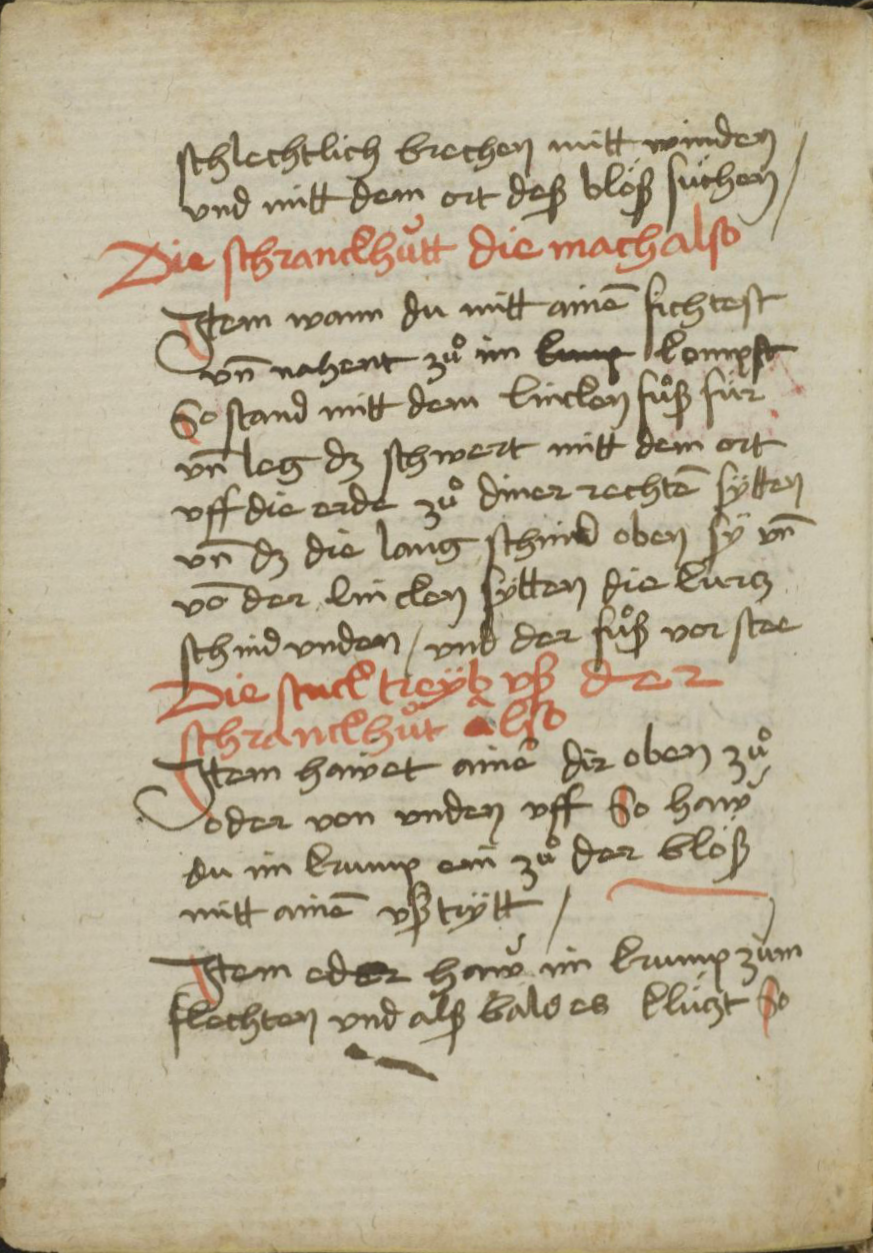 schlechtlich brechen mitt winden /
und mitt dem ort deß blöß süchen /
Die schranckhůtt die mach also
Item wann du mitt ainē fichtest
vn̄ nahent zů im kompst
So stand mitt dem lincken fůß für
vn̄ leg dz schwert mitt dem ort
vff die erde zů diner rechtē sÿtten
vn̄ dz die lang schnid oben sÿ vn̄
vō der lincken sÿtten die kurcz
schnid vnden / vnd der fůß vor stee
Die stuck treÿb vß der
schranckhůt also
Item hawet ainē dir oben zů
oder von vnden vff So haw
du im krump ein zů der blöß
mitt ainē vßtrÿtt /
Item oder haw im krump zum
flechten vnd alß bald es klüczt So